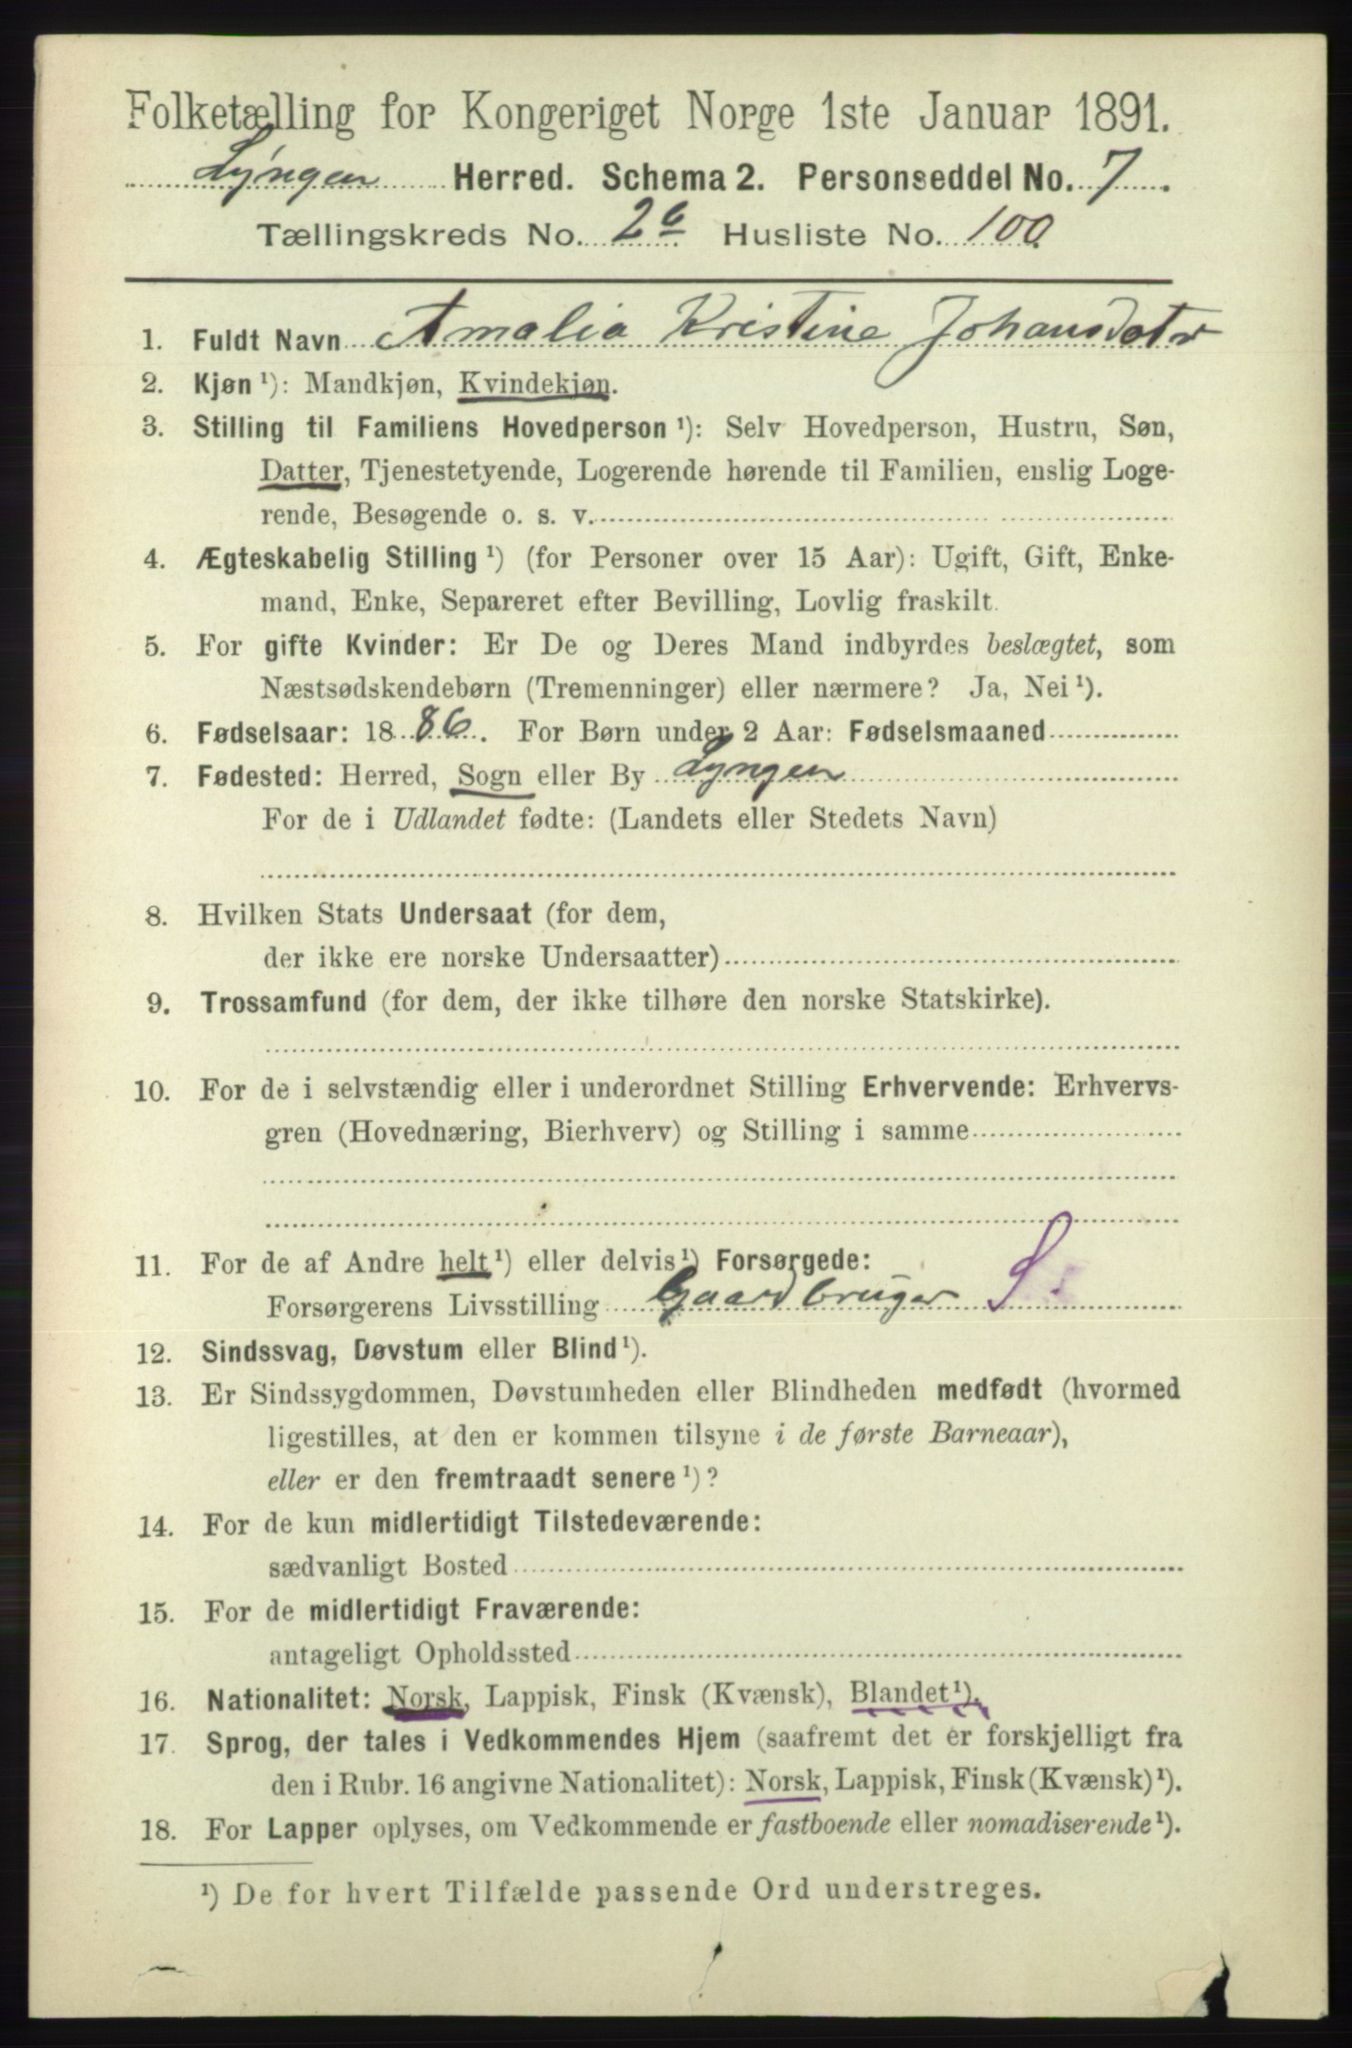 Folketælling for Kongeriget Norge 1ste Januar 1891.
Lyngen Herred. Schema 2. Personseddel No. 7.
Tællingskreds No. 2a Husliste No. 100.
1. Fuldt Navn Amalia Kristine Johansdatr
2. Kjøn ¹): Mandkjøn, Kvindekjøn.
3. Stilling til Familiens Hovedperson ¹): Selv Hovedperson, Hustru, Søn,
Datter, Tjenestetyende, Logerende hørende til Familien, enslig Loge-
rende, Besøgende o. s. v.
4. Ægteskabelig Stilling ¹) (for Personer over 15 Aar): Ugift, Gift, Enke-
mand, Enke, Separeret efter Bevilling, Lovlig fraskilt.
5. For gifte Kvinder: Er De og Deres Mand indbyrdes beslægtet, som
Næstsødskendebørn (Tremenninger) eller nærmere? Ja, Nei ¹).
6. Fødselsaar: 1886. For Børn under 2 Aar: Fødselsmaaned
7. Fødested: Herred, Sogn eller By Lyngen
For de i Udlandet fødte: (Landets eller Stedets Navn)
8. Hvilken Stats Undersaat (for dem,
der ikke ere norske Undersaatter)
9. Trossamfund (for dem, der ikke tilhøre den norske Statskirke).
10. For de i selvstændig eller i underordnet Stilling Erhvervende: Erhvervs-
gren (Hovednæring, Bierhverv) og Stilling i samme
11. For de af Andre helt ¹) eller delvis ¹) Forsørgede:
Forsørgerens Livsstilling Gaardbruger S.
12. Sindssvag, Døvstum eller Blind ¹).
13. Er Sindssygdommen, Døvstumheden eller Blindheden medfødt (hvormed
ligestilles, at den er kommen tilsyne i de første Barneaar),
eller er den fremtraadt senere ¹)?
14. For de kun midlertidigt Tilstedeværende:
sædvanligt Bosted
15. For de midlertidigt Fraværende:
antageligt Opholdssted
16. Nationalitet: Norsk, Lappisk, Finsk (Kvænsk), Blandet ¹).
17. Sprog, der tales i Vedkommendes Hjem (saafremt det er forskjelligt fra
den i Rubr. 16 angivne Nationalitet): Norsk, Lappisk, Finsk (Kvænsk) ¹).
18. For Lapper oplyses, om Vedkommende er fastboende eller nomadiserende ¹).
¹) De for hvert Tilfælde passende Ord understreges.